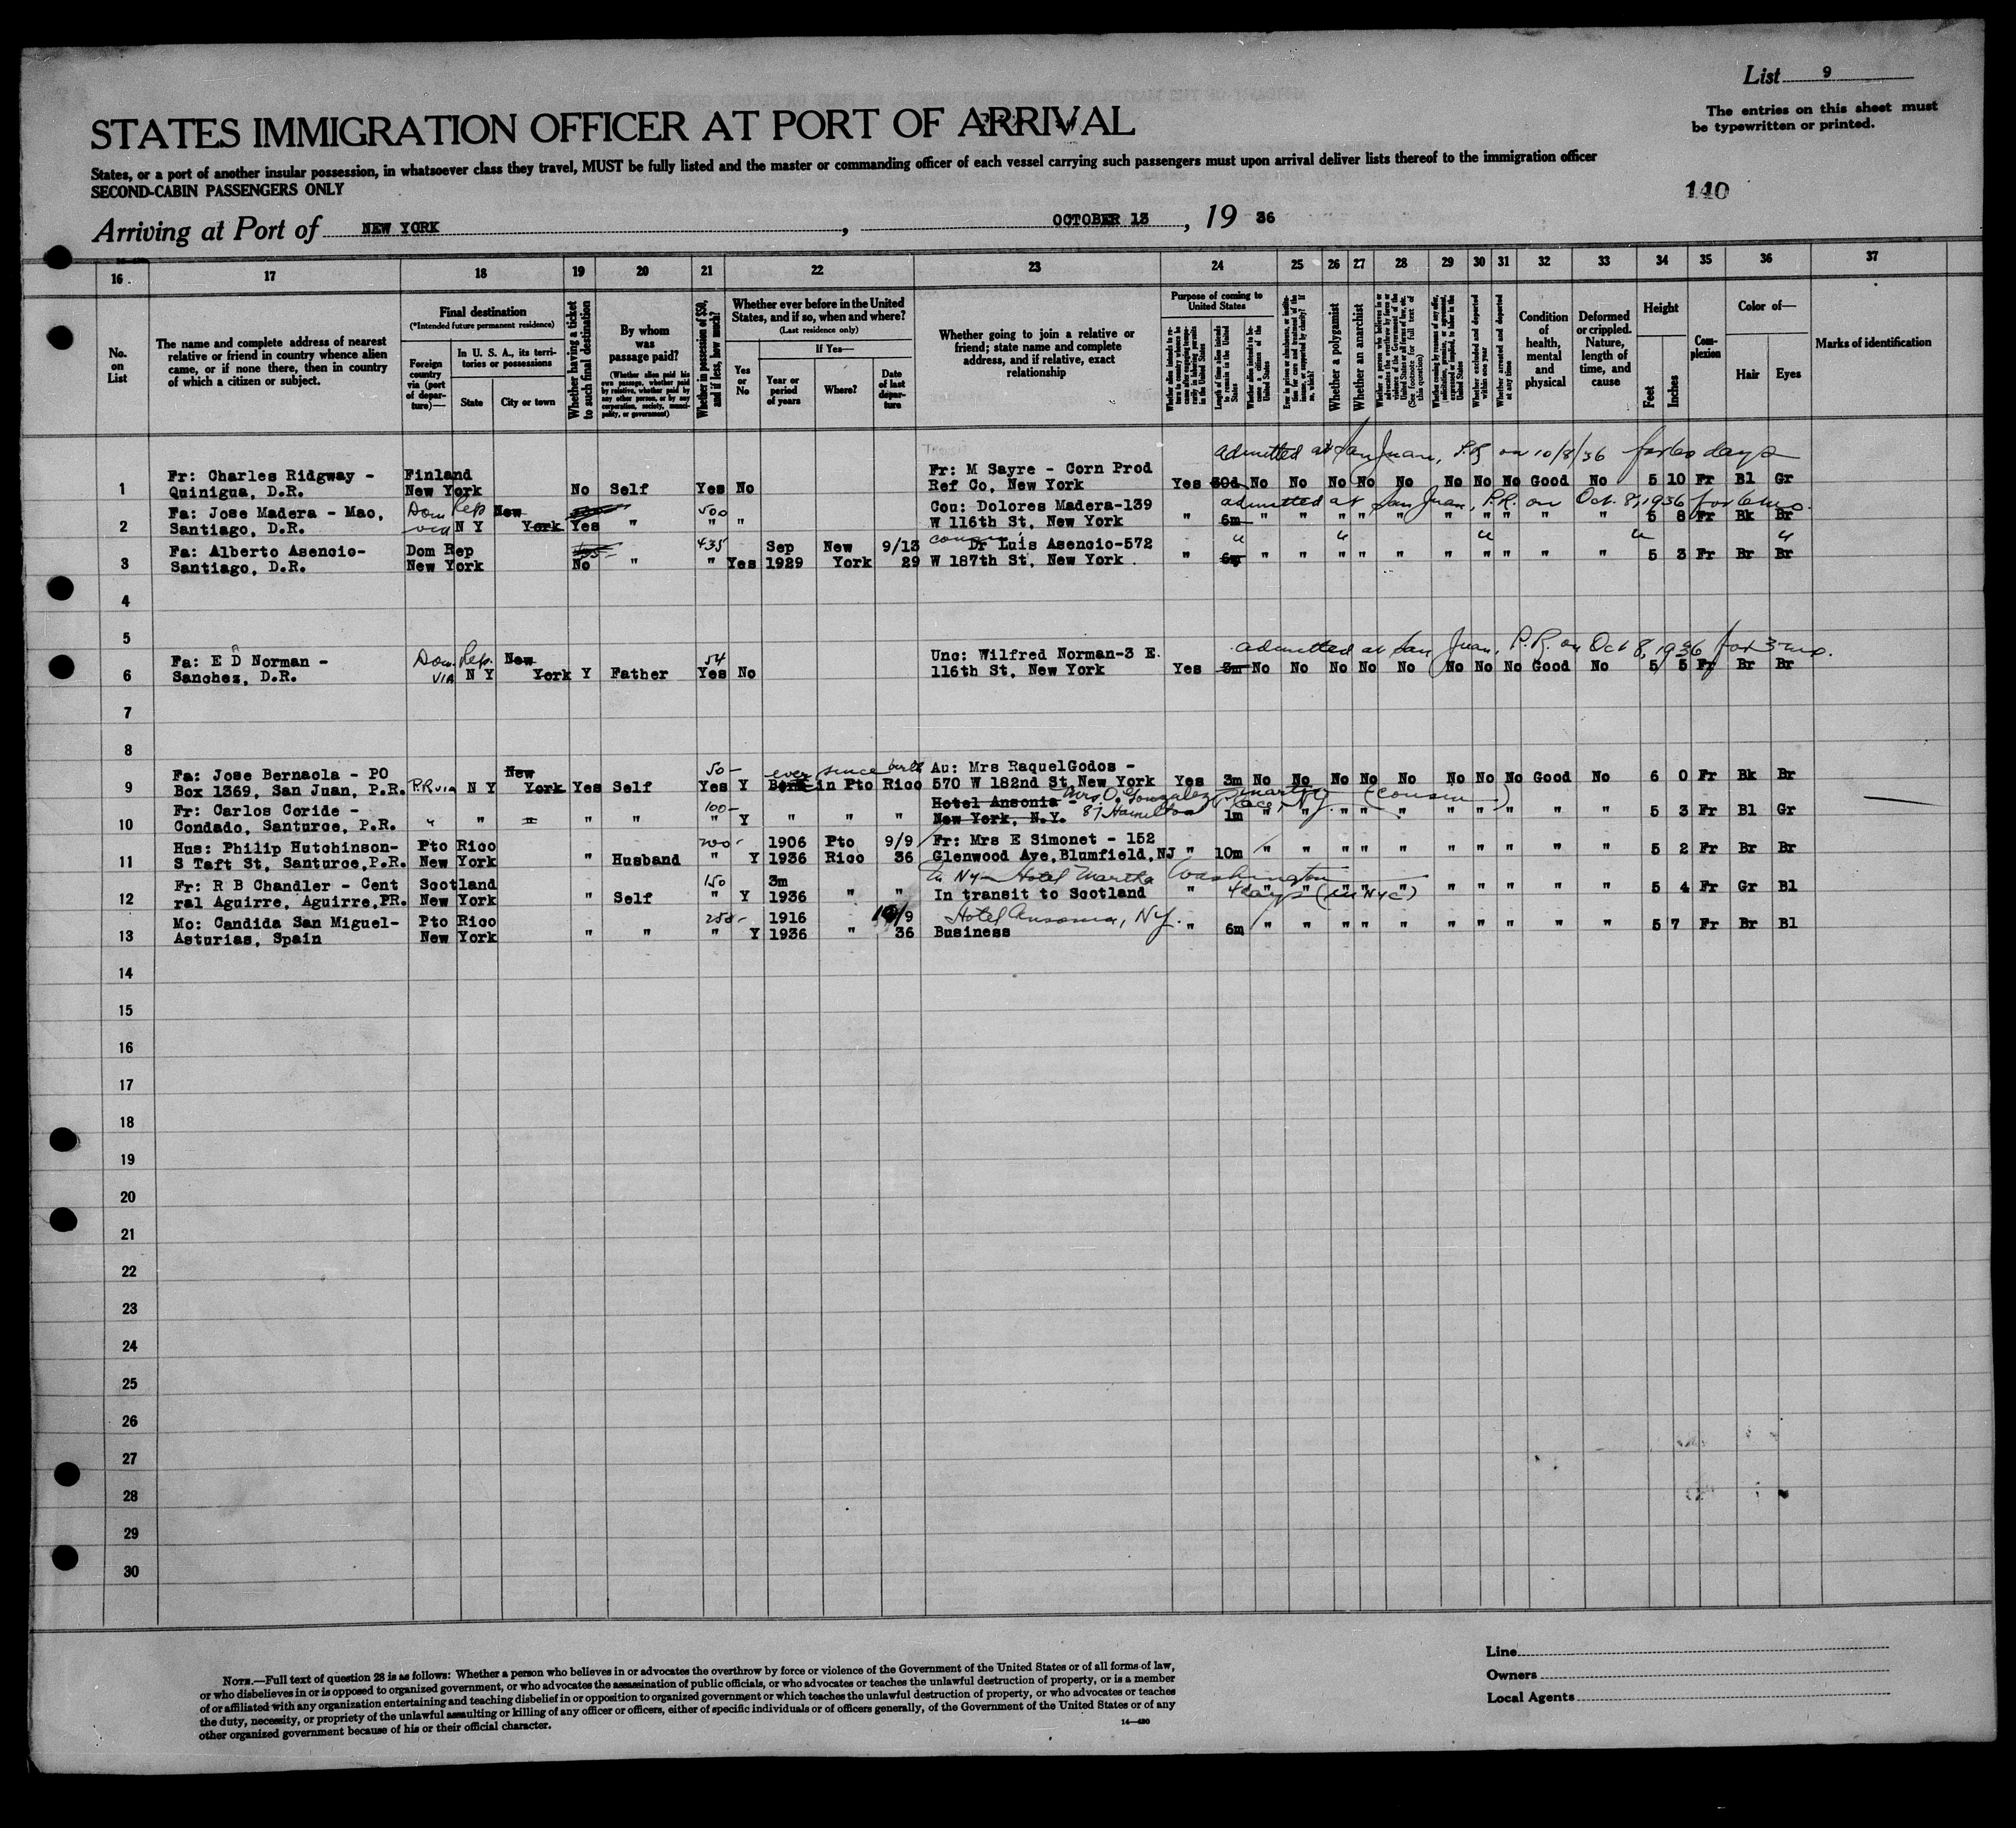 List 9
The entries on this sheet must
be typewritten or printed.
STATES IMMIGRATION OFFICER AT PORT OF ARRIVAL
States, or a port of another insular possession, in whatsoever class they travel, MUST be fully listed and the master or commanding officer of each vessel carrying such passengers must upon arrival deliver lists thereof to the immigration officer
SECOND-CABIN PASSENGERS ONLY
140
Arriving at Port of NEW YORK, OCTOBER 13, 19 36
16 17 18 19 20 21 22 23 24 25 26 27 28 29 30 31 32 33 34 35 36 37
No. on List
The name and complete address of nearest relative or friend in country whence alien came, or if none there, then in country of which a citizen or subject.
Final destination
(*Intended future permanent residence)
Foreign country via (port of departure)—
In U. S. A., its territories or possessions
State
City or town
Whether having a ticket to such final destination
By whom was passage paid?
(Whether alien paid his own passage, whether paid by relative, whether paid by any other person, or by any corporation, society, municipality, or government)
Whether in possession of $50, and if less, how much?
Whether ever before in the United States, and if so, when and where?
(Last residence only)
Yes or No
If Yes—
Year or period of years
Where?
Date of last departure
Whether going to join a relative or friend; state name and complete address, and if relative, exact relationship
Purpose of coming to United States
Length of time alien intends to remain in the United States
Whether alien intends to become a citizen of the United States
Whether a polygamist
Whether an anarchist
(See footnote for full text of this question)
Whether excluded and deported within one year
Whether arrested and deported at any time
Condition of health, mental and physical
Deformed or crippled. Nature, length of time, and cause
Height
Feet
Inches
Complexion
Color of—
Hair
Eyes
Marks of identification
admitted at San Juan, P.R. on 10/8/36 for 60 days
Fr: Charles Ridgway - Finland Fr: M Sayre - Corn Prod
1 Quinigua, D.R. New York No Self Yes No Ref Co, New York Yes 30d No No No No No No No No Good No 5 10 Fr Bl Gr
Fa: Jose Madera - Mao, Dom Rep New 500 Cou: Dolores Madera-139 admitted at San Juan, P.R. on Oct. 8, 1936 for 6 mo.
2 Santiago, D.R. via N Y York Yes " " " W 116th St, New York " 6m " " " " " " " " " " 5 8 Fr Bk Br
Fa: Alberto Asencio- Dom Rep 435 Sep New 9/13 cousin: Dr Luis Asencio-572 " " " " "
3 Santiago, D.R. New York No " " Yes 1929 York 29 W 187th St, New York. " 6m " " " " " " " " " " 5 3 Fr Br Br
4
5
admitted at San Juan, P.R. on Oct 8, 1936 for 3 mo.
Fa: E D Norman - Dom. Rep. New 54 Unc: Wilfred Norman-3 E.
6 Sanchez, D.R. VIA N Y York Y Father Yes No 116th St, New York Yes 3m No No No No No No No No Good No 5 5 Fr Br Br
7
8
Fa: Jose Bernaola - PO New 50- ever since birth Au: Mrs RaquelGodos -
9 Box 1369, San Juan, P.R. P.R via N Y York Yes Self Yes Y Born in Pto Rico 570 W 182nd St New York Yes 3m No No No No No No No No Good No 6 0 Fr Bk Br
Fr: Carlos Coride - 100- Hotel Ansonia - Mrs. O. Gonzalez Martin (cousin)
10 Condado, Santurce, P.R. " " " " " " Y " " " New York, N.Y. 87 Hamilton Place, N.Y. 1m " " " " " " " " " " 5 3 Fr Bl Gr
Hus: Philip Hutchinson- Pto Rico 200- 1906 Pto 9/9 Fr: Mrs E Simonet - 152
11 S Taft St, Santurce, P.R. New York " Husband " Y 1936 Rico 36 Glenwood Ave, Blumfield, NJ " 10m " " " " " " " " " " 5 2 Fr Br Br
Fr: R B Chandler - Cent Scotland 150 3m In NY - Hotel Martha Washington
12 ral Aguirre, Aguirre, PR. New York " Self " Y 1936 " " In transit to Scotland " 4 days (in NYC) " " " " " " 5 4 Fr Gr Bl
Mo: Candida San Miguel- Pto Rico 250- 1916 10/9 Hotel Ansonia, N.Y.
13 Asturias, Spain New York " " " Y 1936 " 36 Business " 6m " " " " " " " " " " 5 7 Fr Br Bl
14
15
16
17
18
19
20
21
22
23
24
25
26
27
28
29
30
NOTE.—Full text of question 28 is as follows: Whether a person who believes in or advocates the overthrow by force or violence of the Government of the United States or of all forms of law,
or who disbelieves in or is opposed to organized government, or who advocates the assassination of public officials, or who advocates or teaches the unlawful destruction of property, or is a member
of or affiliated with any organization entertaining and teaching disbelief in or opposition to organized government or which teaches the unlawful destruction of property, or who advocates or teaches
the duty, necessity, or propriety of the unlawful assaulting or killing of any officer or officers, either of specific individuals or of officers generally, of the Government of the United States or of any
other organized government because of his or their official character.
14—430
Line
Owners
Local Agents